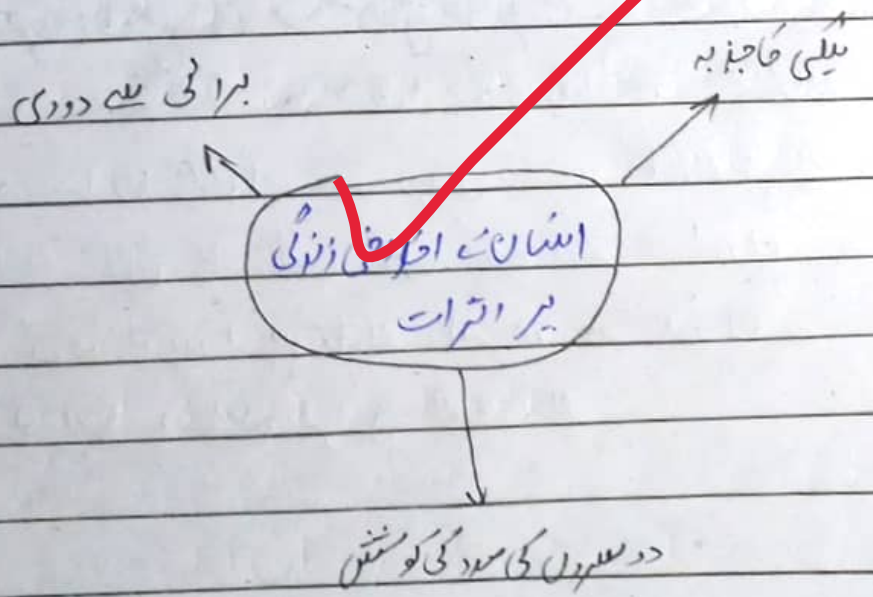 نیکی کا جذبہ
برائی سے دوری
انسان کے اخلاقی زندگی
پر اثرات
دوسروں کی مدد کی کوشش